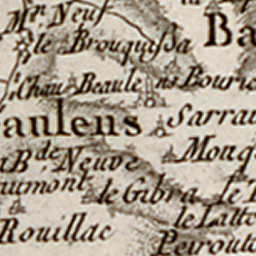 Mⁱⁿ Neuf
le Brouquissa
Ba
Chau Beaulens
Bouric
aulens
Sarrau
La Bᵈᵉ Neuve
Monq
aumont
le Gibra
le
le Latto
Rouillac
Peiroute